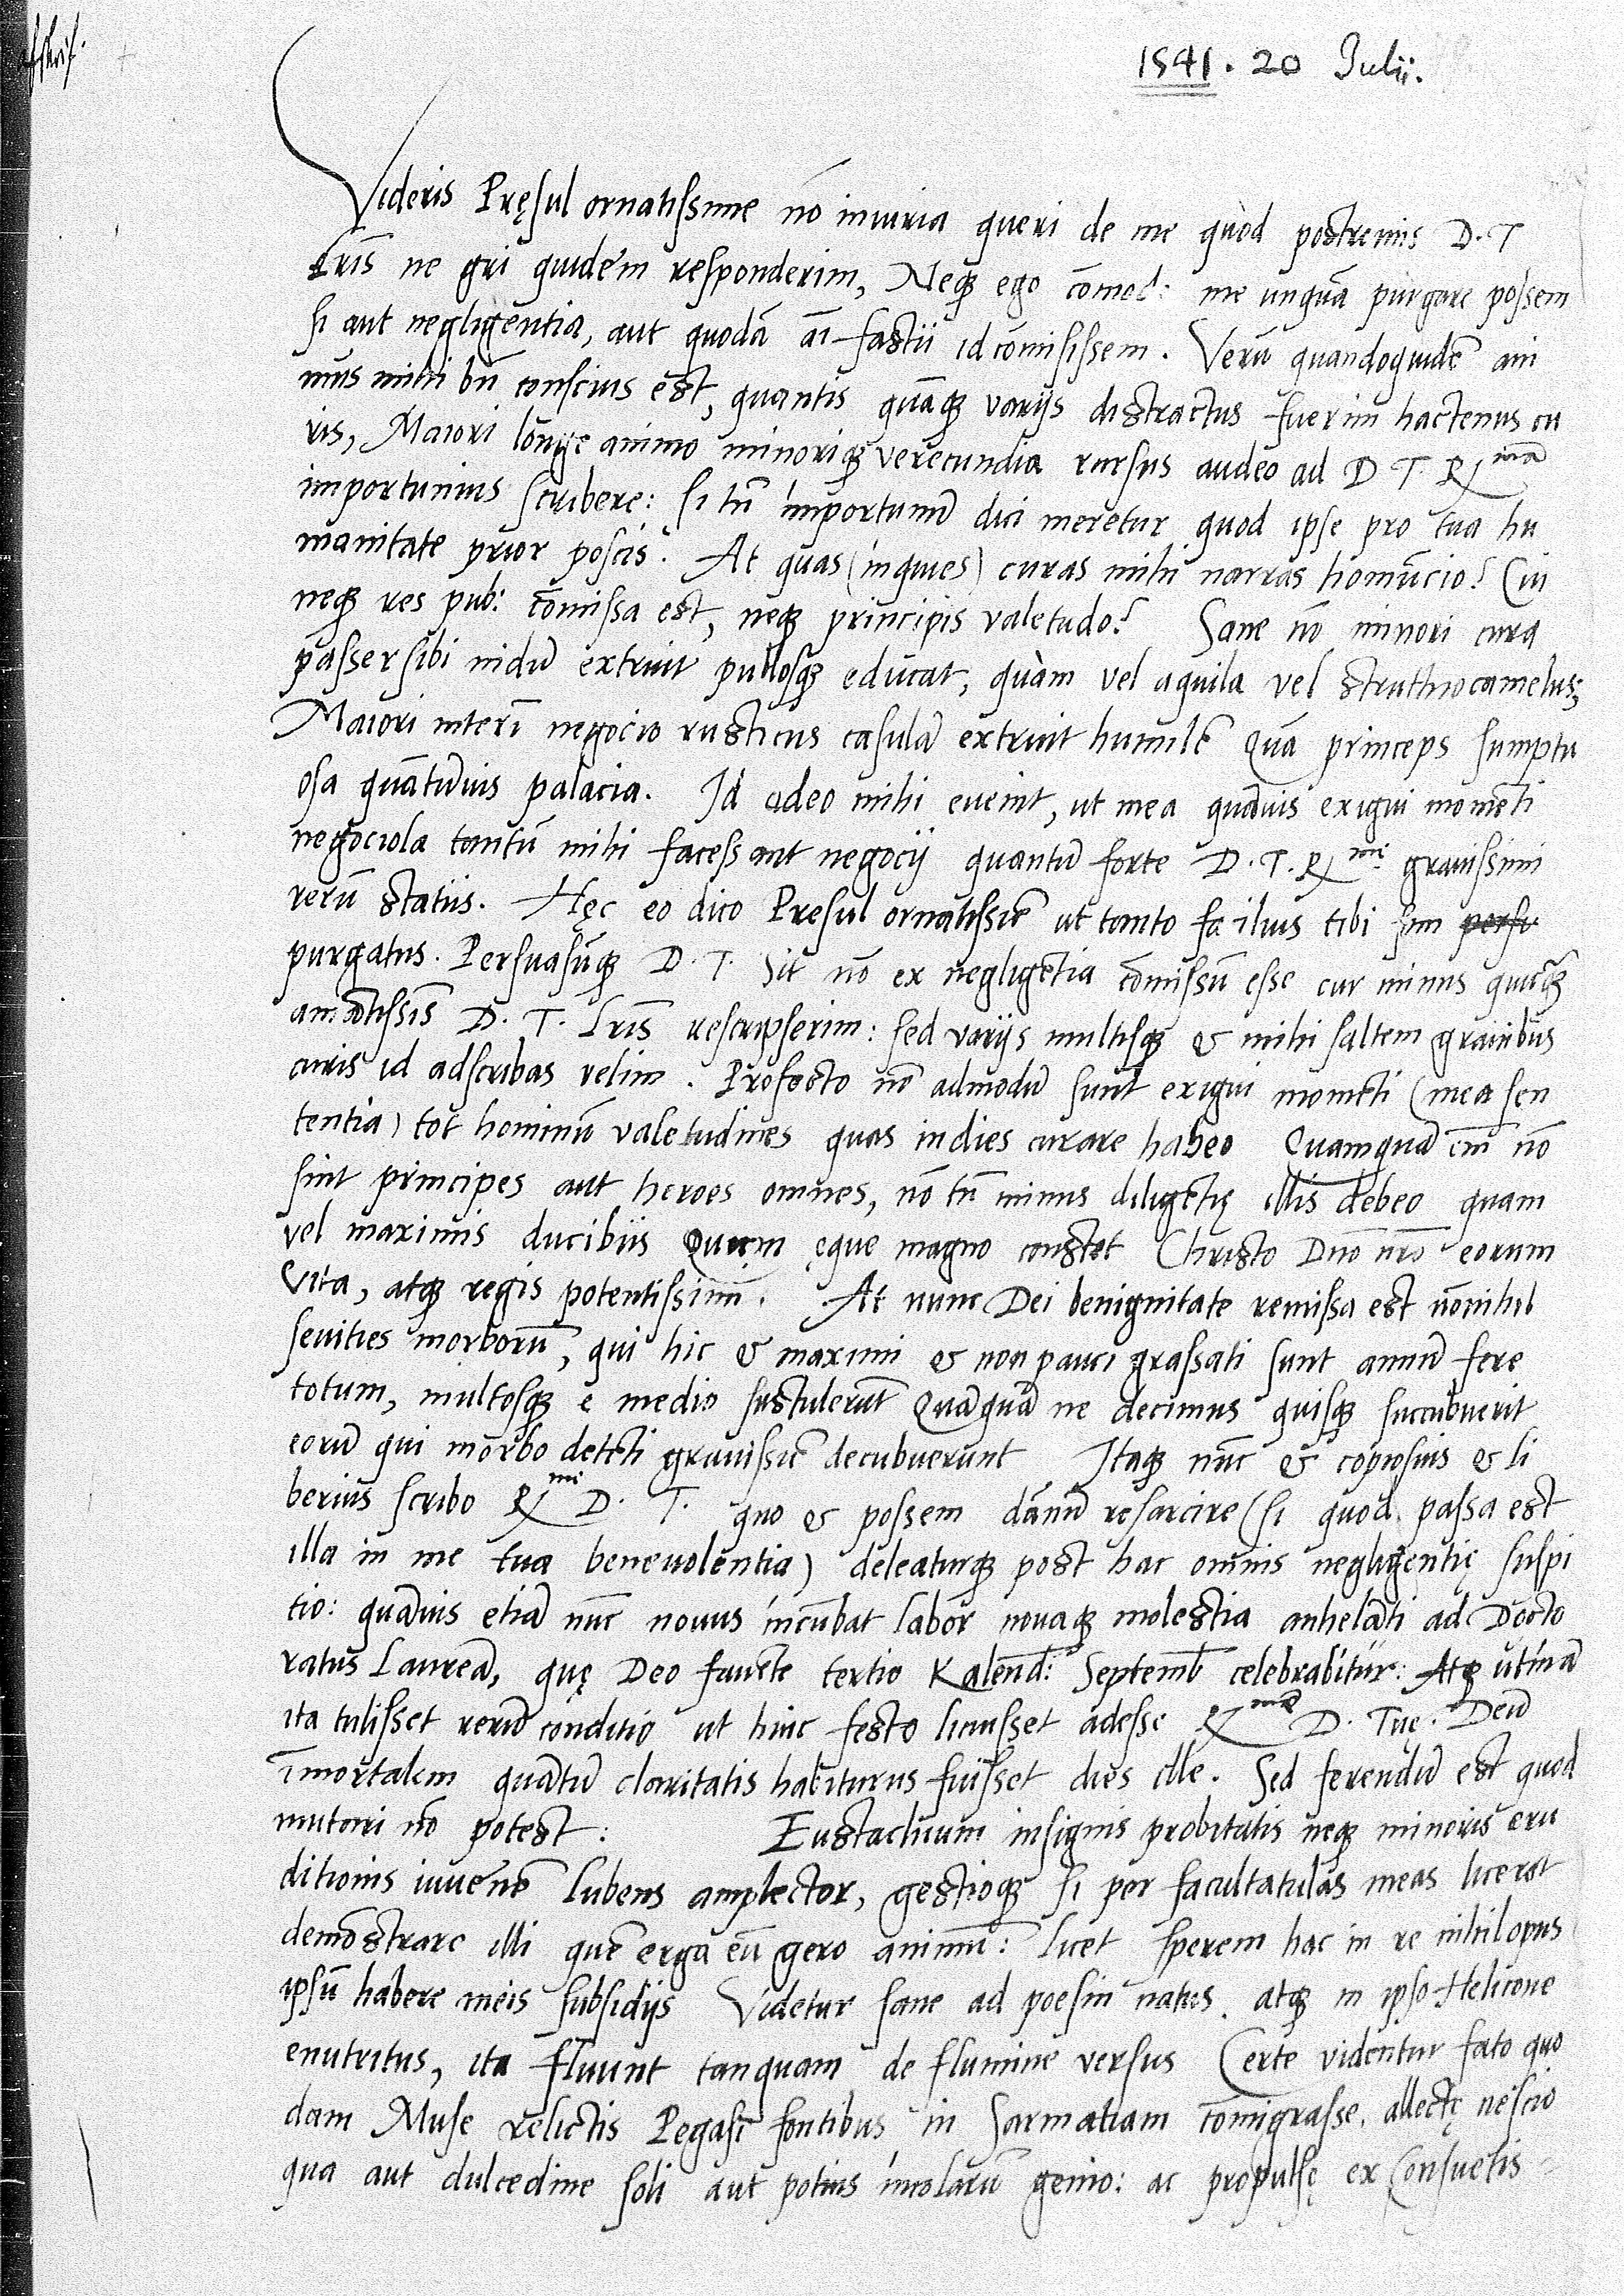 1541. 20 Julii.
Videris Pręsul ornatissime nō iniuria queri de me quòd postremis D. T
Lr̃is ne gri quidem responderim, Neq; ego com̄od: me unquā purgare possem
si aut negligentia, aut quodā aī fastu id com̄isissem. Verū quandoquidē ani
mus mihi bñ conscius est, quantis quāq; varijs distractus fuerim hactenus cu
ris, Maiori longe animo minoriq; verecundia rursus audeo ad D T. R^ma
importunius scribere: si tñ importunū dici meretur quod ipse pro tua hu
manitate prior poscis. At quas (inquies) curas mihi narras homuncio? Cui
neq; res pub: com̄issa est, neq; principis valetudo? Sane nō minori cura
passer sibi nidū extruit pullosq; educat, quàm vel aquila vel struthiocamelus;
Maiori interī negocio rusticus casulā extruit humilē quā princeps sumptu
osa quātumvis palacia. Id adeo mihi euenit, ut mea quāuis exigui momēti
negociola tantū mihi facessant negocij quantū forte D. T. R^me grauissimi
rerū status. Hęc eo dico Presul ornatissīē ut tanto facilius tibi sim persu
purgatus. Persuasūq; D. T. sit nō ex negligētia com̄issū esse cur minus quicq;
amātissīs D. T. Lr̃is rescripserim: sed varijs multisq; & mihi saltem grauibus
curis id adscribas velim. Profecto nō admodū sunt exigui momēti (mea sen
tentia) tot hominū valetudines quas indies curare habeo Quamquā em̄ nō
sint principes aut heroes omnes, nō tñ minus diligētię illis debeo quam
vel maximis ducibus Quum ęque magno constet Christo Dño nr̃o eorum
vita, atq; regis potentissimi. At nunc Dei benignitate remissa est nōnihil
seuities morborū, qui hic & maximi & non pauci grassati sunt annū fere
totum, multosq; e medio sustulerūt Quāquā ne decimus quisq; succubuerit
eorū qui morbo detēti grauissīē decubuerunt Itaq; nūc & copiosius & li
berius scribo R^me D. T. quo & possem dānū resarcire (si quod passa est
illa in me tua beneuolentia) deleaturq; post hac omnis negligentię suspi
tio: quāuis etiā nūc nouus incūbat labor nouaq; molestia anhelāti ad Docto
ratus Laureā, quę Deo fauēte tertio Kalend: Septemb celebrabitur: Atq; utinā
ita tulisset rerū conditio ut huic festo licuisset adesse R^me D. Tuę. Deū
im̄ortalem quātū claritatis habiturus fuisset dies ille. Sed ferendū est quod
mutari nō potest: Eustachium insignis probitatis neq; minoris eru
ditionis iuuenē lubens amplector, gestioq; si per facultatulas meas licerat
demōstrare illi quē erga eū gero animū: licet sperem hac in re nihil opus
ipsū habere meis subsidijs Videtur sane ad poesin natus, atq; in ipso Helicone
enutritus, ita fluunt tanquam de flumine versus Certe videntur fato quo
dam Muse relictis Pegasi fontibus in Sarmatiam com̄igrasse, allectę nescio
qua aut dulcedine soli aut potius incolarū genio: ac propulsę ex consuetis